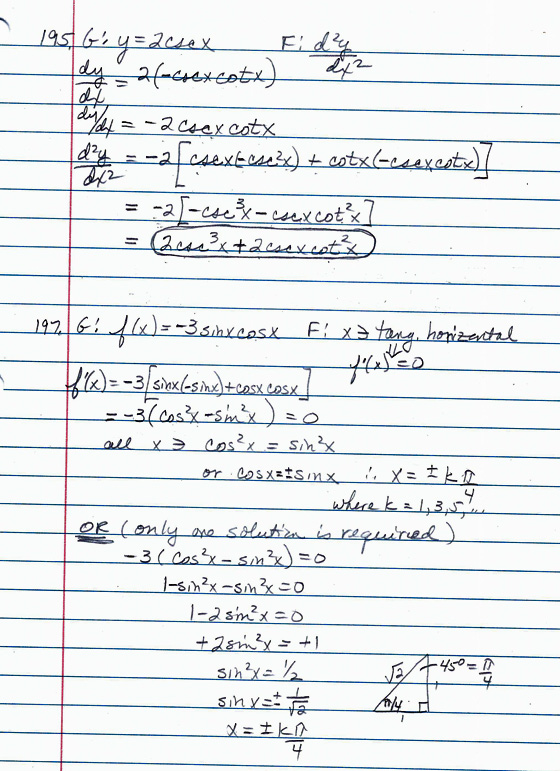 195. G: y = 2cscx F: d²y/dx²
dy/dx = 2(-cscx cotx)
dy/dx = -2cscx cotx
d²y/dx² = -2[cscx(-csc²x) + cotx(-cscx cotx)]
= -2[-csc³x - cscx cot²x]
= 2csc³x + 2cscx cot²x
197. G: f(x) = -3sinxcosx F: x ∋ tang. horizontal
⇓
f'(x) = 0
f'(x) = -3[sinx(-sinx) + cosx cosx]
= -3(cos²x - sin²x) = 0
all x ∋ cos²x = sin²x
or cosx = ± sinx ∴ x = ± k π/4
where k = 1, 3, 5, ...
OR (only one solution is required)
-3(cos²x - sin²x) = 0
1 - sin²x - sin²x = 0
1 - 2sin²x = 0
+2sin²x = +1
sin²x = 1/2
sinx = ± 1/√2
x = ± k π/4
√2 45° = π/4
1
π/4
1